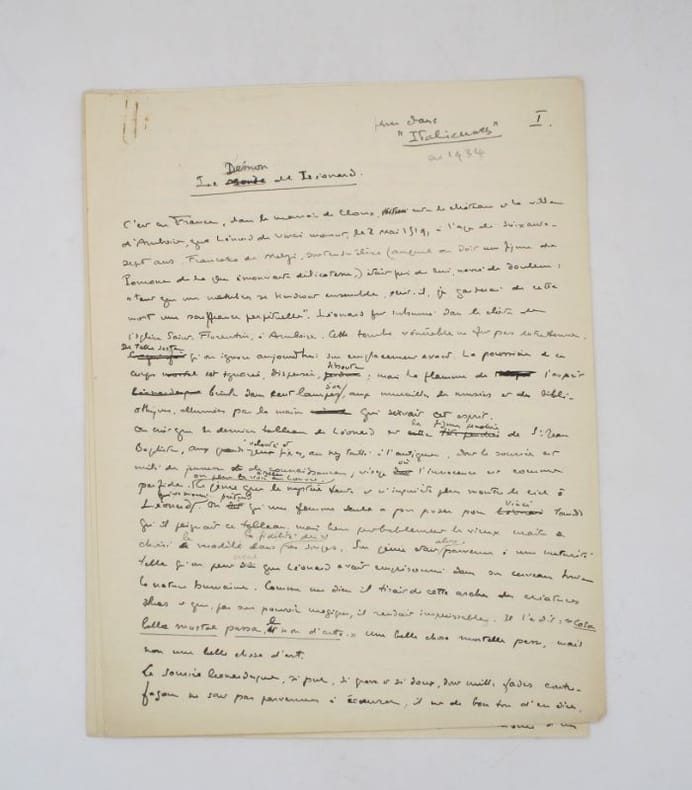 paru dans
"Italiennes"
en 1934
I.
Démon
Le de Léonard.
C'est en France, dans le manoir de Cloux, entre le château et la ville
d'Amboise, que Léonard de Vinci mourut, le 2 Mai 1519, à l'âge de soixante-
sept ans. Francesco de Melzi, (auquel on doit une figure de
Pomone de la plus émouvante délicatesse,) était près de lui, navré de douleur :
"tant que mes membres se tiendront ensemble, écrit-il, je garderai de cette
mort une souffrance perpétuelle". Léonard fut inhumé dans le cloître de
l'église Saint Florentin, à Amboise. Cette tombe vénérable ne fut pas entretenue,
De telle sorte
qu'on ignore aujourd'hui son emplacement exact. La poussière de ce
dissoute
corps est ignorée, dispersée, ; mais la flamme de l'esprit
d'or
brûle dans cent lampes, aux murailles des musées et des biblio-
thèques, allumées par la main qui servait cet esprit.
On croit que le dernier tableau de Léonard est de St Jean
Baptiste, aux yeux fixes, au nez taillé à l'antique, dont le sourire est
mêlé de pudeur et de connaissance, visage où l'innocence est comme
perfide. génie que le mystère tente et n'inquiète plus montre le ciel à
Léonard. On qu'une femme seule a pu poser pour Vinci tandis
qu'il peignait ce tableau. mais bien probablement le vieux maître a
choisi le modèle dans ses songes. Son génie était alors parvenu à une maturité
telle qu'on peut dire que Léonard avait emprisonné dans son cerveau toute
la nature humaine. Comme un dieu il tirait de cette arche des créatures
et que, par son pouvoir magique, il rendait impérissables. Il l'a dit : "Cosa
bella mortal passa, e non d'arte." Une belle chose mortelle passe, mais
non une belle chose d'art.
Le sourire léonardesque, si pur, si grave et si doux, dont mille fades contre-
façons ne sont pas parvenues à écœurer, il est de bon ton d'en dire,